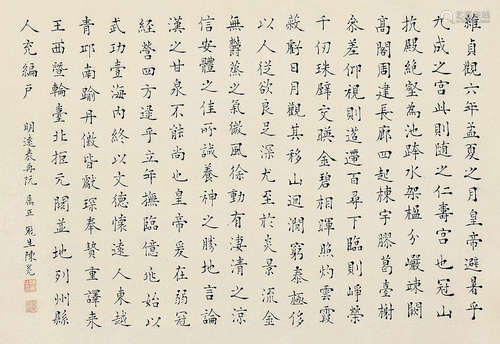 維貞觀六年孟夏之月皇帝避暑乎
九成之宮此則隨之仁壽宮也冠山
抗殿絕壑為池跨水架楹分巖竦闕
高閣周建長廊四起棟宇膠葛臺榭
參差仰視則迢遰百尋下臨則崢嶸
千仞珠璧交暎金碧相暉照灼雲霞
蔽虧日月觀其移山迴澗窮泰極侈
以人從欲良足深尤至於炎景流金
無鬱蒸之氣微風徐動有淒清之涼
信安體之佳所誠養神之勝地言論
漢之甘泉不能尚也皇帝爰在弱冠
經營四方逮乎立年撫臨億兆始以
武功壹海內終以文德懷遠人東越
青邱南踰丹徼皆獻琛奉贄重譯來
王西暨輪臺北拒元闕並地列州縣
人充編戶
明遠 屬正 陳冕